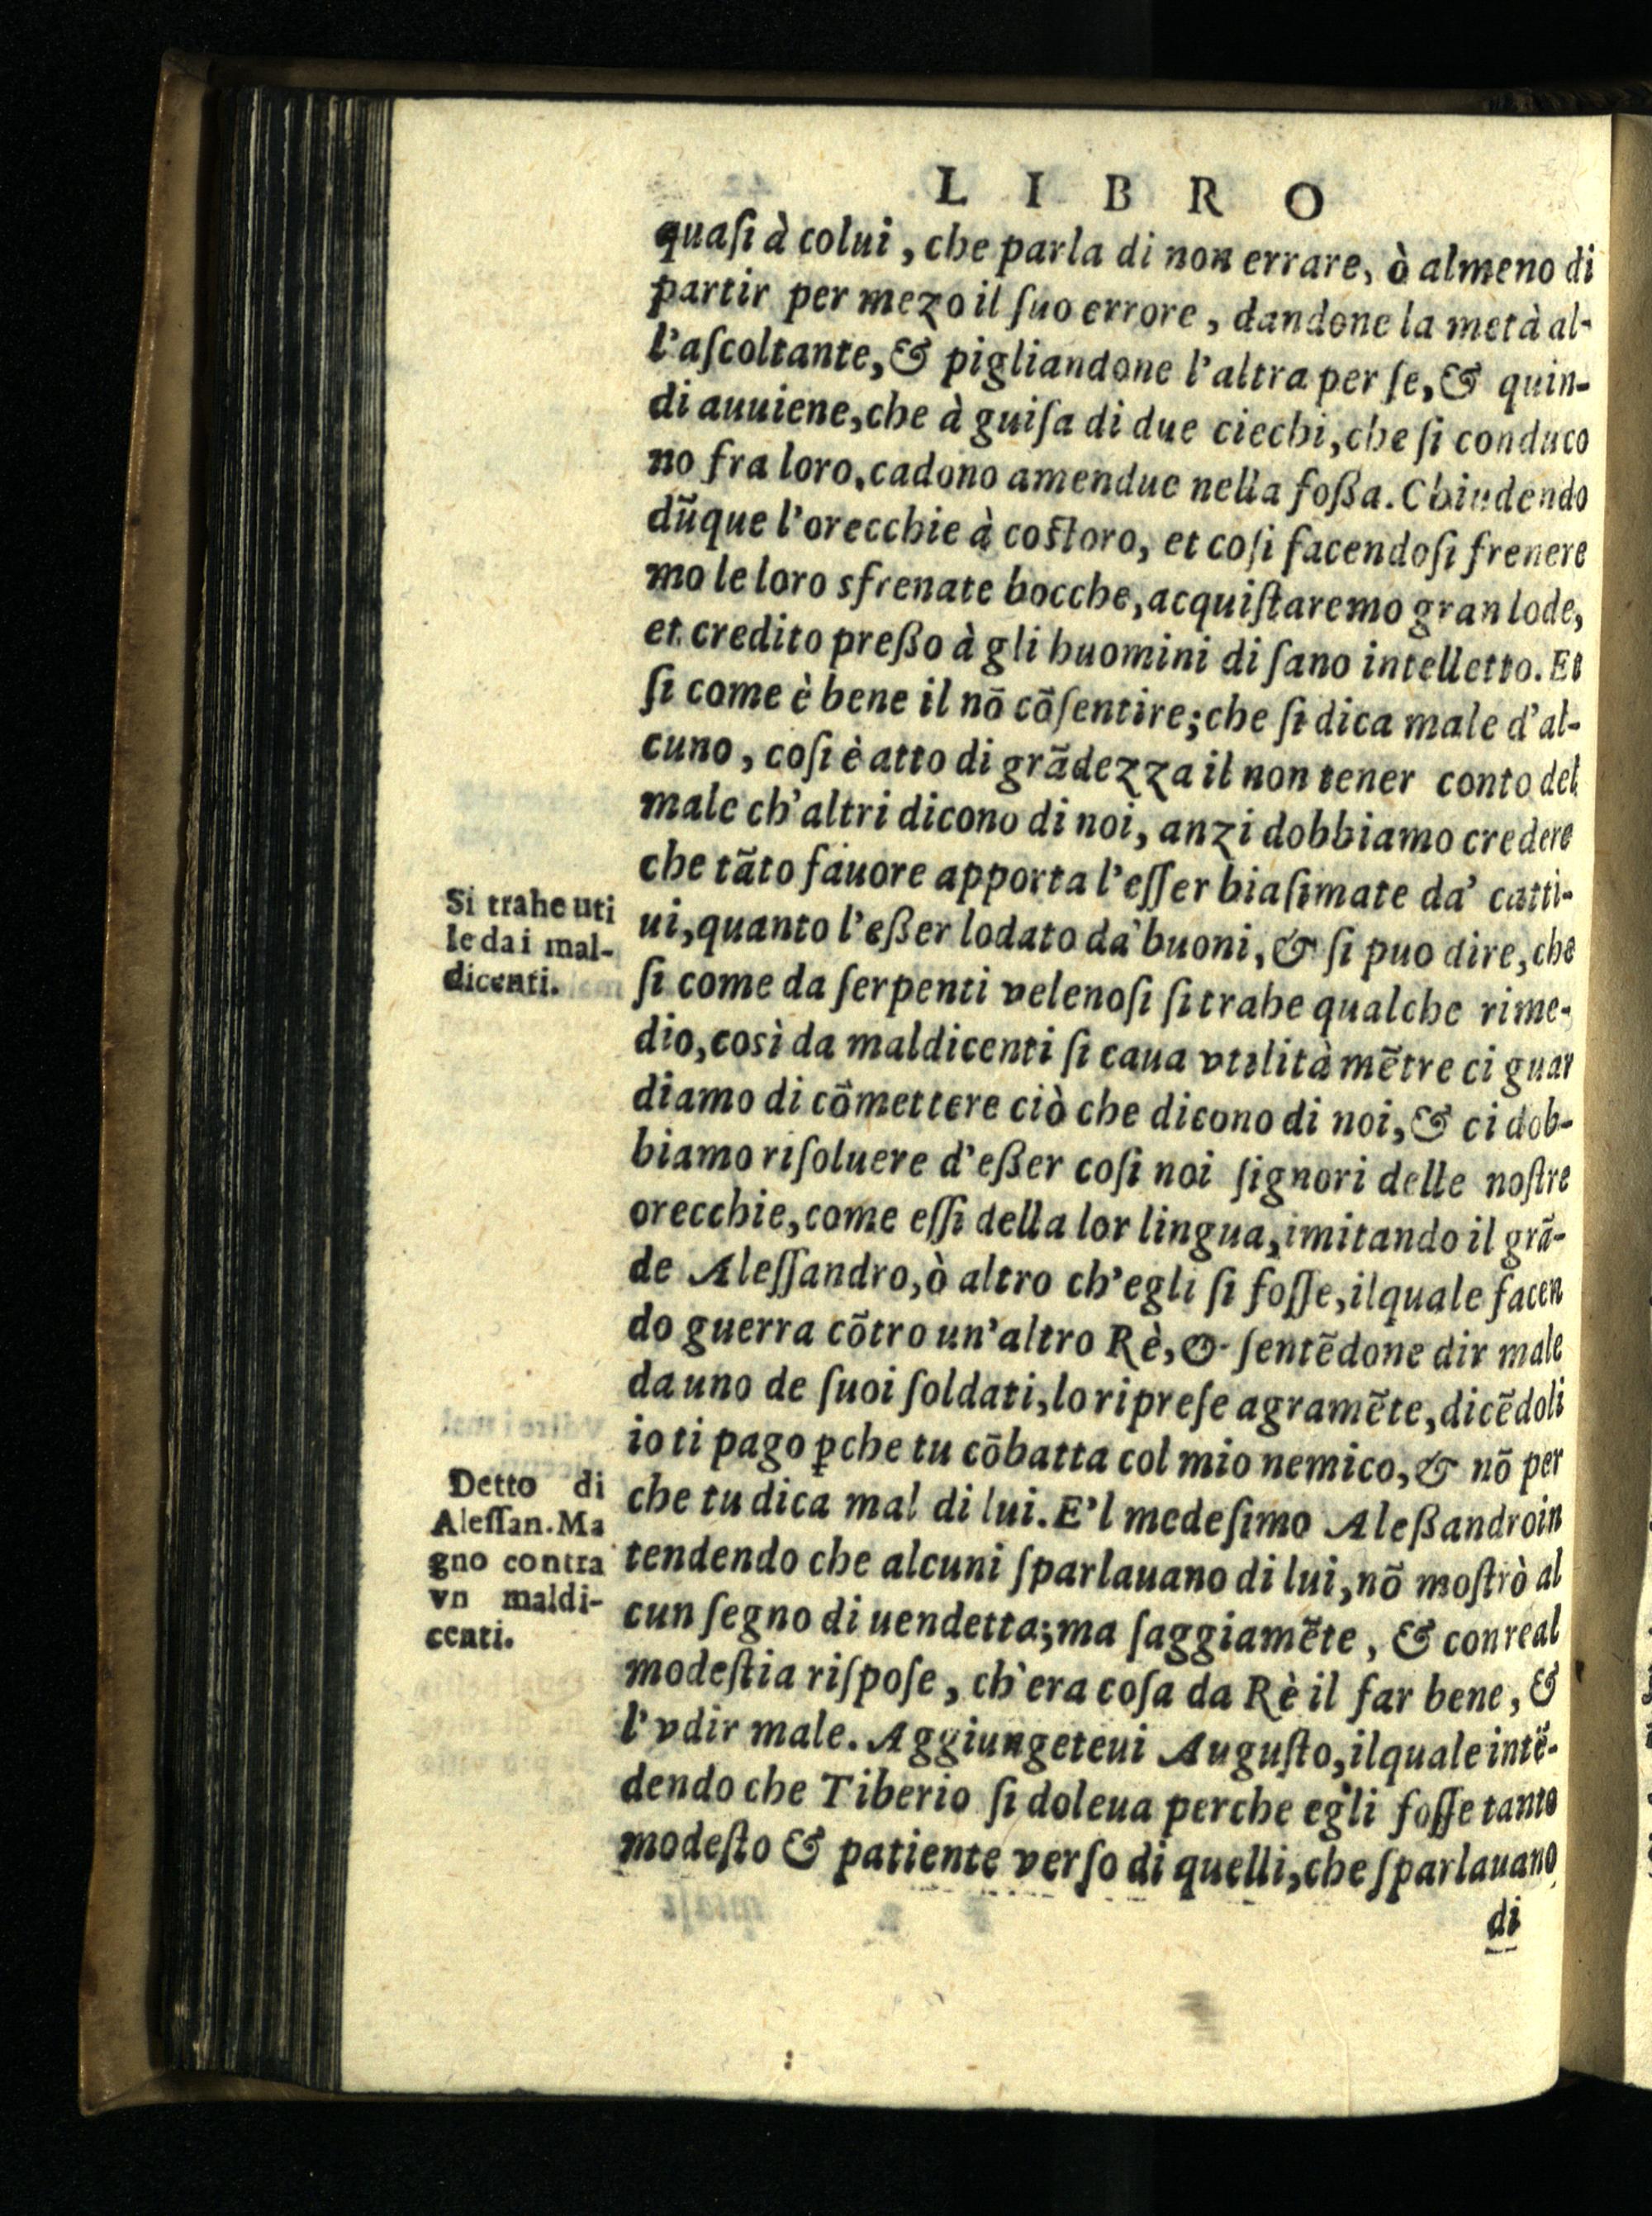 LIBRO
quaſi à colui, che parla di non errare, ò almeno di
partir per mezo il ſuo errore, dandone la metà al-
l'aſcoltante, & pigliandone l'altra per ſe, & quin-
di auuiene, che à guiſa di due ciechi, che ſi conduco
no fra loro, cadono amendue nella foßa. Chiudendo
dũque l'orecchie à coſtoro, et coſi facendoſi frenere
mo le loro sfrenate bocche, acquiſtaremo gran lode,
et credito preßo à gli huomini di ſano intelletto. Et
ſi come è bene il nõ cõſentire; che ſi dica male d'al-
cuno, coſi è atto di grãdezza il non tener conto del
male ch'altri dicono di noi, anzi dobbiamo credere
che tãto fauore apporta l'eſſer biaſimate da' catti-
Si trahe uti
le da i mal-
dicenti.
ui, quanto l'eßer lodato da' buoni, & ſi puo dire, che
ſi come da ſerpenti velenoſi ſi trahe qualche rime-
dio, così da maldicenti ſi caua vtilità mẽtre ci guar
diamo di cõmettere ciò che dicono di noi, & ci dob-
biamo riſoluere d'eßer coſi noi ſignori delle noſtre
orecchie, come eſſi della lor lingua, imitando il grã-
de Aleſſandro, ò altro ch'egli ſi foſſe, ilquale facen
do guerra cõtro un'altro Rè, & ſentẽdone dir male
da uno de ſuoi ſoldati, lo ripreſe agramẽte, dicẽdoli
io ti pago ꝑche tu cõbatta col mio nemico, & nõ per
Detto di
Aleſſan. Ma
gno contra
vn maldi-
centi.
che tu dica mal di lui. E'l medeſimo Aleßandro in
tendendo che alcuni ſparlauano di lui, nõ moſtrò al
cun ſegno di uendetta; ma ſaggiamẽte, & con real
modeſtia riſpoſe, ch'era coſa da Rè il far bene, &
l'vdir male. Aggiungeteui Auguſto, ilquale intẽ-
dendo che Tiberio ſi doleua perche egli foſſe tanto
modeſto & patiente verſo di quelli, che ſparlauano
di